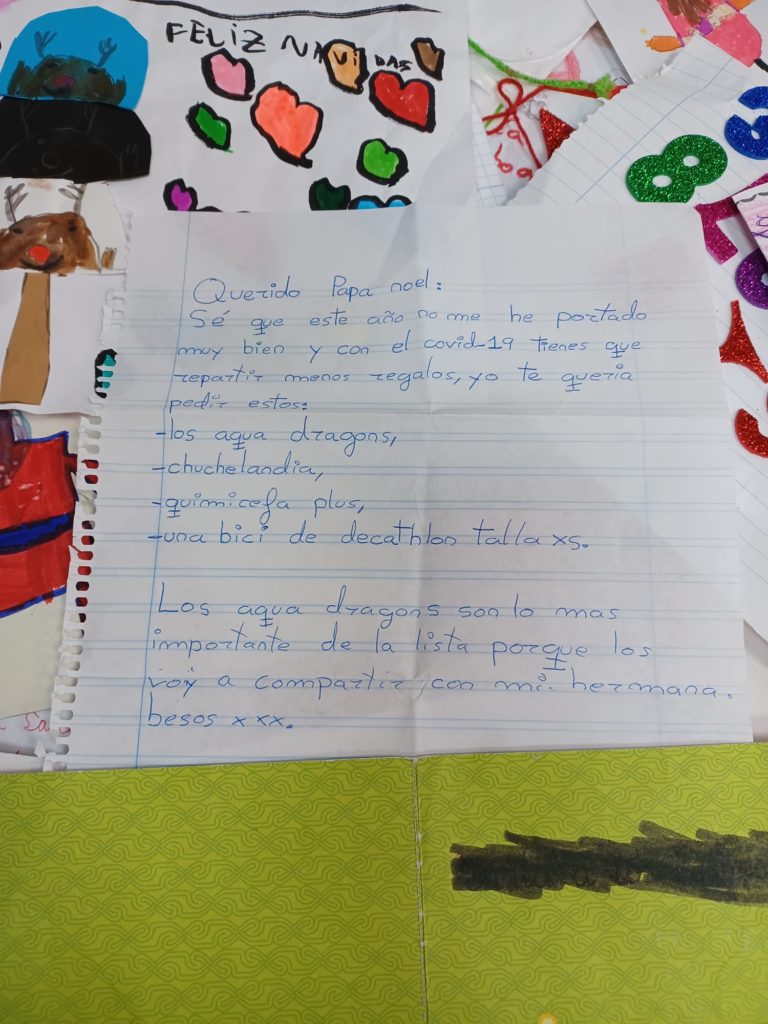 FELIZ NAVIDAD
Querido Papa noel:
Sé que este año no me he portado
muy bien y con el covid-19 tienes que
repartir menos regalos, yo te queria
pedir estos:
-los aqua dragons,
-chuchelandia,
-quimicefa plus,
-una bici de decathlon talla xs.
Los aqua dragons son lo mas
importante de la lista porque los
voy a compartir con mi hermana.
besos xxx.
8